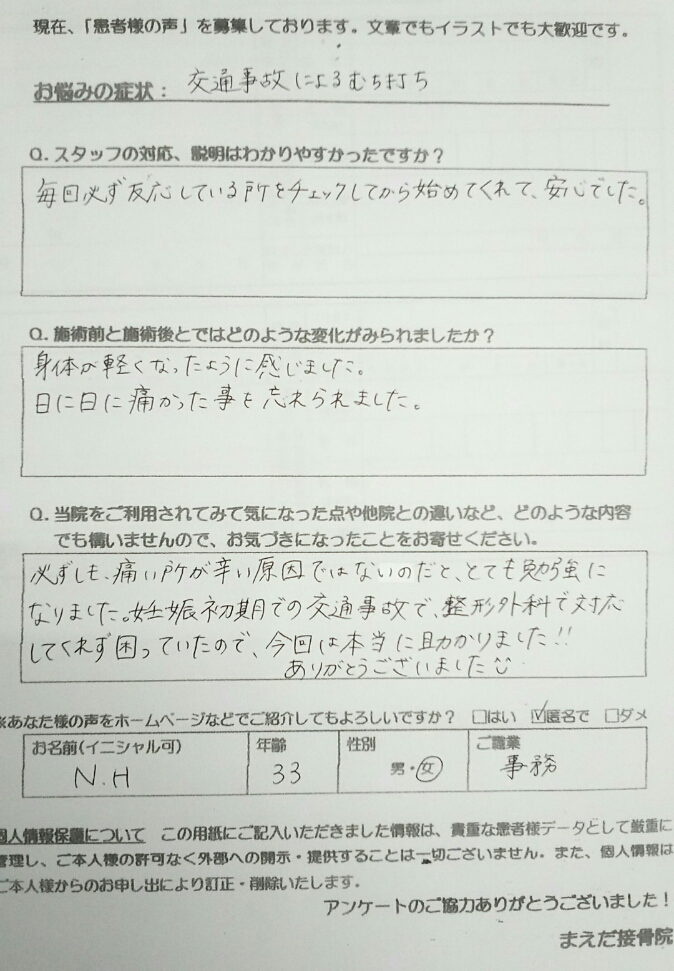 現在、「患者様の声」を募集しております。文章でもイラストでも大歓迎です。
お悩みの症状： 交通事故によるむち打ち
Q. スタッフの対応、説明はわかりやすかったですか？
毎回必ず反応している所をチェックしてから始めてくれて、安心でした。
Q. 施術前と施術後とではどのような変化がみられましたか？
身体が軽くなったように感じました。
日に日に痛かった事を忘れられました。
Q. 当院をご利用されてみて気になった点や他院との違いなど、どのような内容
でも構いませんので、お気づきになったことをお寄せください。
必ずしも、痛い所が辛い原因ではないのだと、とても勉強に
なりました。妊娠初期での交通事故で、整形外科で対応
してくれず困っていたので、今回は本当に助かりました!!
ありがとうございました
※あなた様の声をホームページなどでご紹介してもよろしいですか？ □はい ☑匿名で □ダメ
お名前(イニシャル可) 年齢 性別 ご職業
N.H 33 男・女 事務
個人情報保護について この用紙にご記入いただきました情報は、貴重な患者様データとして厳重に
管理し、ご本人様の許可なく外部への開示・提供することは一切ございません。また、個人情報は
ご本人様からのお申し出により訂正・削除いたします。
アンケートのご協力ありがとうございました！
まえだ接骨院